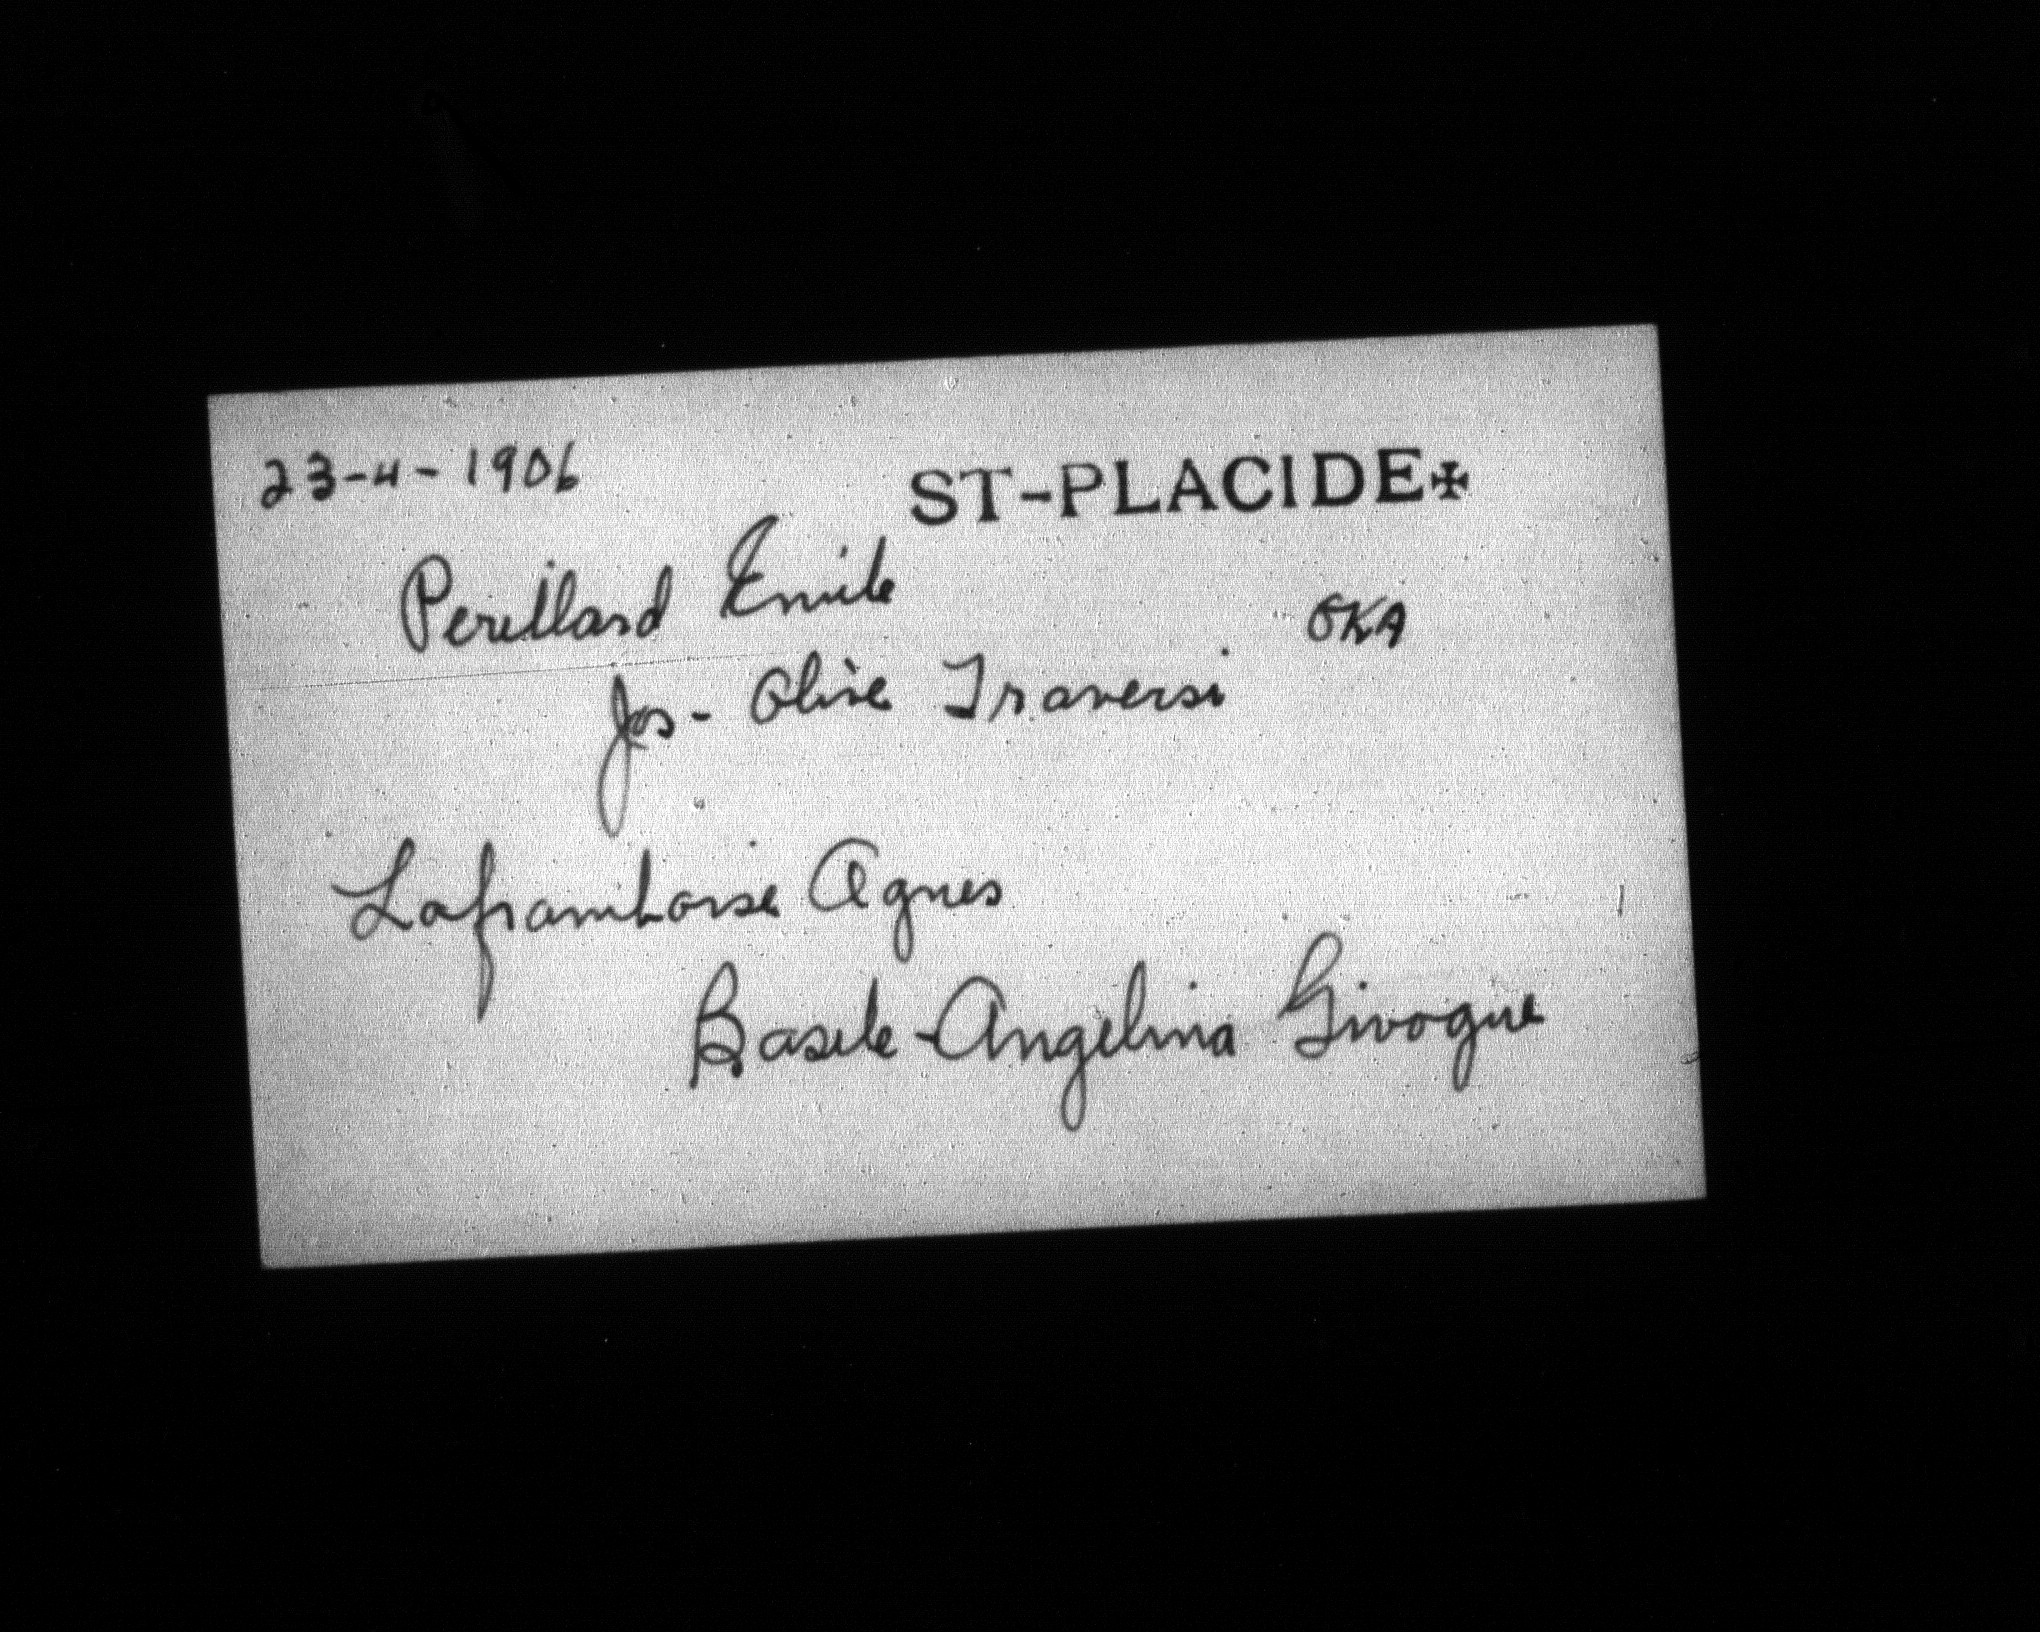 23-4-1906 ST-PLACIDE✠
Perillard Emile
OKA
Jos - Olive Traversi
Laframboise Agnes
Basile - Angelina Givogue